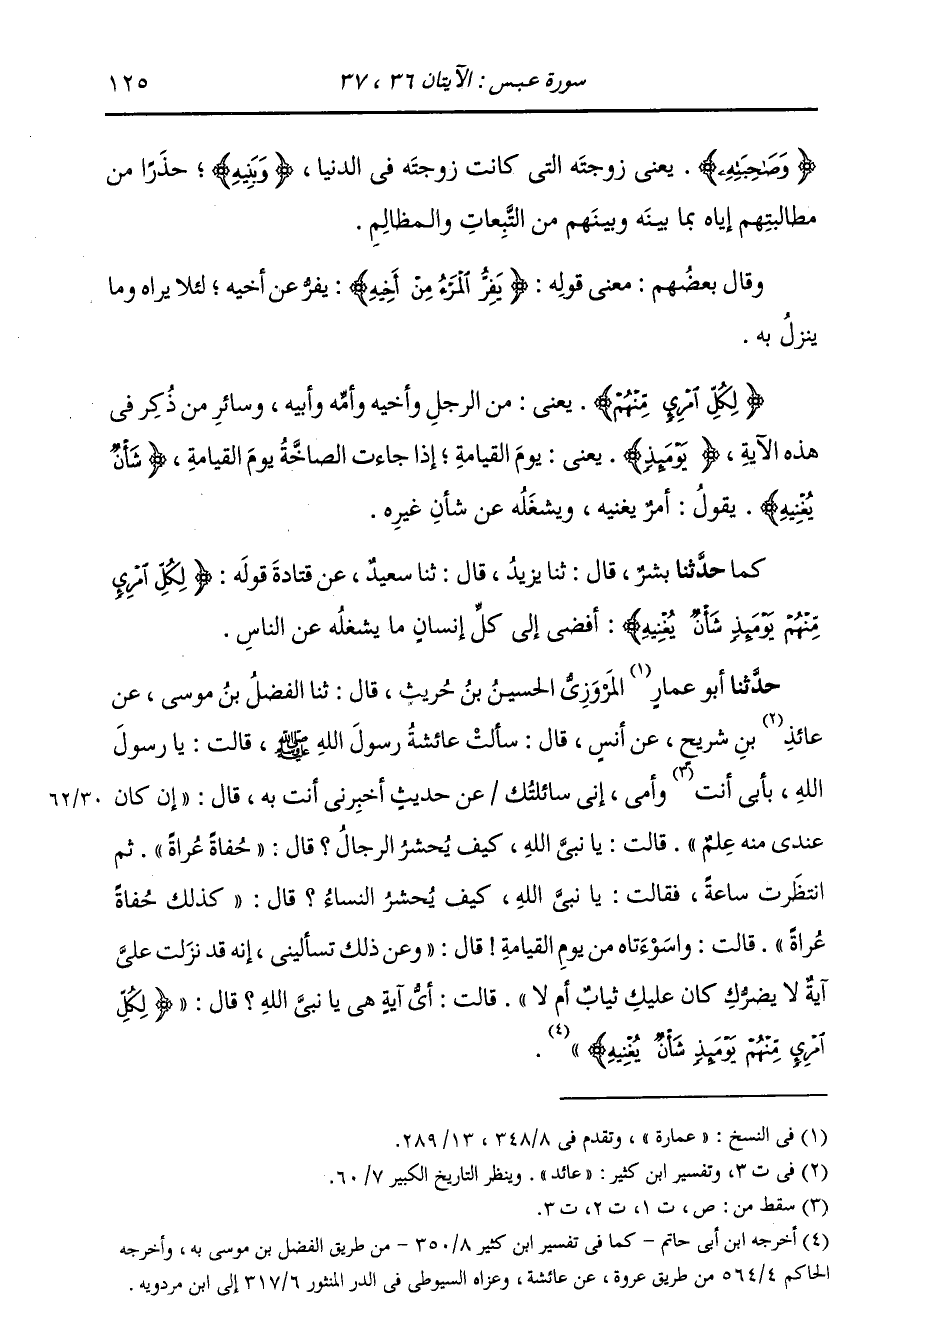 سورة عبس : الآيتان ٣٦ ، ٣٧ ١٢٥
﴿ وَصَٰحِبَتِهِۦ﴾ . يعنى زوجتَه التى كانت زوجتَه فى الدنيا ، ﴿ وَبَنِيهِ﴾ ؛ حذَرًا من
مطالبتِهم إياه بما بينَه وبينَهم من التَّبِعاتِ والمظالِمِ .
وقال بعضُهم : معنى قولِه : ﴿ يَفِرُّ ٱلْمَرْءُ مِنْ أَخِيهِ﴾ : يفرُّ عن أخيه ؛ لئلا يراه وما
ينزلُ به .
﴿ لِكُلِّ ٱمْرِئٍ مِّنْهُمْ﴾ . يعنى : من الرجلِ وأخيه وأمِّه وأبيه ، وسائرِ من ذُكِر فى
هذه الآيةِ ، ﴿ يَوْمَئِذٍ﴾ . يعنى : يومَ القيامةِ ؛ إذا جاءت الصاخَّةُ يومَ القيامةِ ، ﴿ شَأْنٌ
يُغْنِيهِ﴾ . يقولُ : أمرٌ يغنيه ، ويشغَلُه عن شأنِ غيرِه .
كما حدَّثنا بشرٌ ، قال : ثنا يزيدُ ، قال : ثنا سعيدٌ ، عن قتادةَ قولَه : ﴿ لِكُلِّ ٱمْرِئٍ
مِّنْهُمْ يَوْمَئِذٍ شَأْنٌ يُغْنِيهِ﴾ : أفضى إلى كلِّ إنسانٍ ما يشغلُه عن الناسِ .
حدَّثنا أبو عمارٍ(١) المَرْوَزِىُّ الحسينُ بنُ حُريثٍ ، قال : ثنا الفضلُ بنُ موسى ، عن
عائذِ(٢) بنِ شريح ، عن أنسٍ ، قال : سألتْ عائشةُ رسولَ اللهِ ﷺ ، قالت : يا رسولَ
اللهِ ، بأبى أنت(٣) وأمى ، إنى سائلتُك / عن حديثٍ أخبِرنى أنت به ، قال : « إن كان ٦٢/٣٠
عندى منه عِلمٌ » . قالت : يا نبىَّ اللهِ ، كيف يُحشرُ الرجالُ ؟ قال : « حُفاةً عُراةً » . ثم
انتظَرت ساعةً ، فقالت : يا نبىَّ اللهِ ، كيف يُحشرُ النساءُ ؟ قال : « كذلك حُفاةً
عُراةً » . قالت : واسَوْءَتاه من يومِ القيامةِ ! قال : « وعن ذلك تسألينى ، إنه قد نزَلت علىَّ
آيةٌ لا يضرُّكِ كان عليكِ ثيابٌ أم لا » . قالت : أىُّ آيةٍ هى يا نبىَّ اللهِ ؟ قال : « ﴿ لِكُلِّ
ٱمْرِئٍ مِّنْهُمْ يَوْمَئِذٍ شَأْنٌ يُغْنِيهِ﴾ »(٤) .
(١) فى النسخ : « عمارة » ، وتقدم فى ٣٤٨/٨ ، ٢٨٩/١٣.
(٢) فى ت ٣، وتفسير ابن كثير : «عائد» . وينظر التاريخ الكبير ٧/ ٦٠.
(٣) سقط من : ص ، ت ١، ت ٢، ت ٣.
(٤) أخرجه ابن أبى حاتم - كما فى تفسير ابن كثير ٣٥٠/٨ - من طريق الفضل بن موسى به ، وأخرجه
الحاكم ٥٦٤/٤ من طريق عروة ، عن عائشة ، وعزاه السيوطى فى الدر المنثور ٣١٧/٦ إلى ابن مردويه .